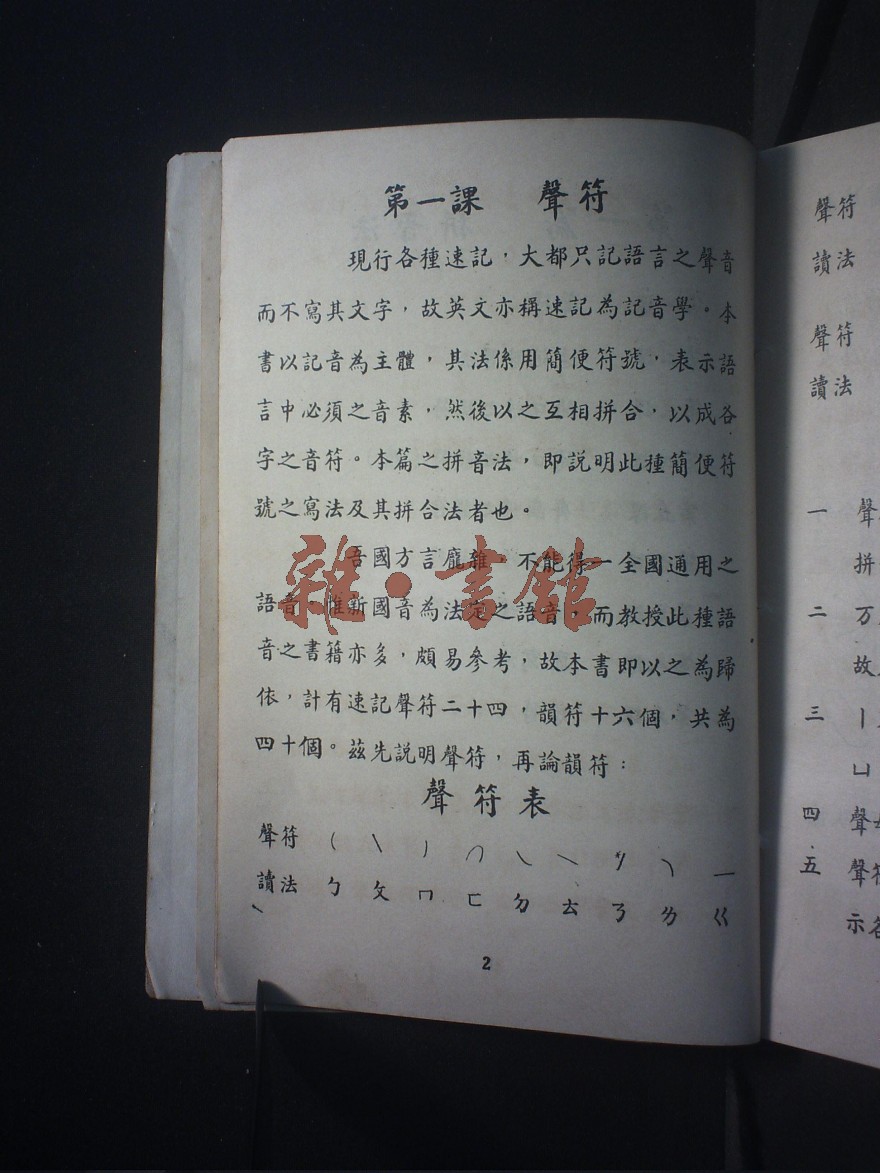 第一課 聲符
現行各種速記，大都只記語言之聲音
而不寫其文字，故英文亦稱速記為記音學。本
書以記音為主體，其法係用簡便符號，表示語
言中必須之音素，然後以之互相拼合，以成各
字之音符。本篇之拼音法，即説明此種簡便符
號之寫法及其拼合法者也。
吾國方言龐雜，不能得一全國通用之
語音，惟新國音為法定之語音，而教授此種語
音之書籍亦多，頗易參考，故本書即以之為歸
依，計有速記聲符二十四，韻符十六個，共為
四十個。茲先説明聲符，再論韻符：
聲符表
聲符
讀法 ㄅ ㄆ ㄇ ㄈ ㄉ ㄊ ㄋ ㄌ ㄍ
2
雜·書館
聲符
讀法
聲符
讀法
一 聲
拼
二 万
故
三 丨
ㄩ
四 聲
五 聲符
示各